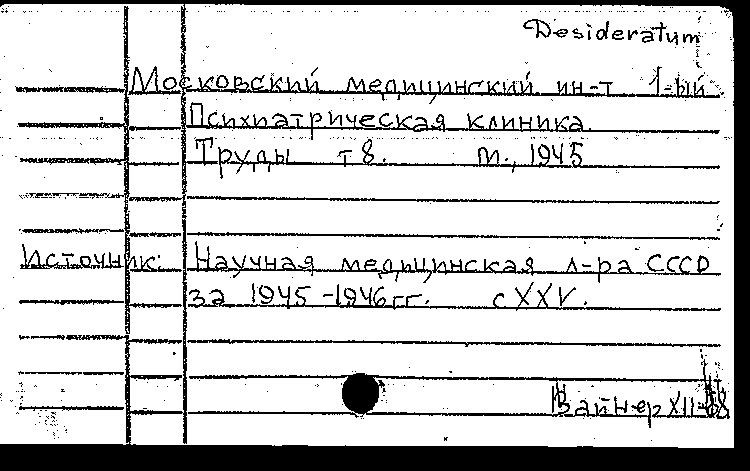 Desideratum
Московский медицинский ин-т 1-ый
Психиатрическая клиника.
Труды т 8. М., 1945
Источник: Научная медицинская л-ра СССР
за 1945-1946гг. с XXV.
Вайнер XII-68